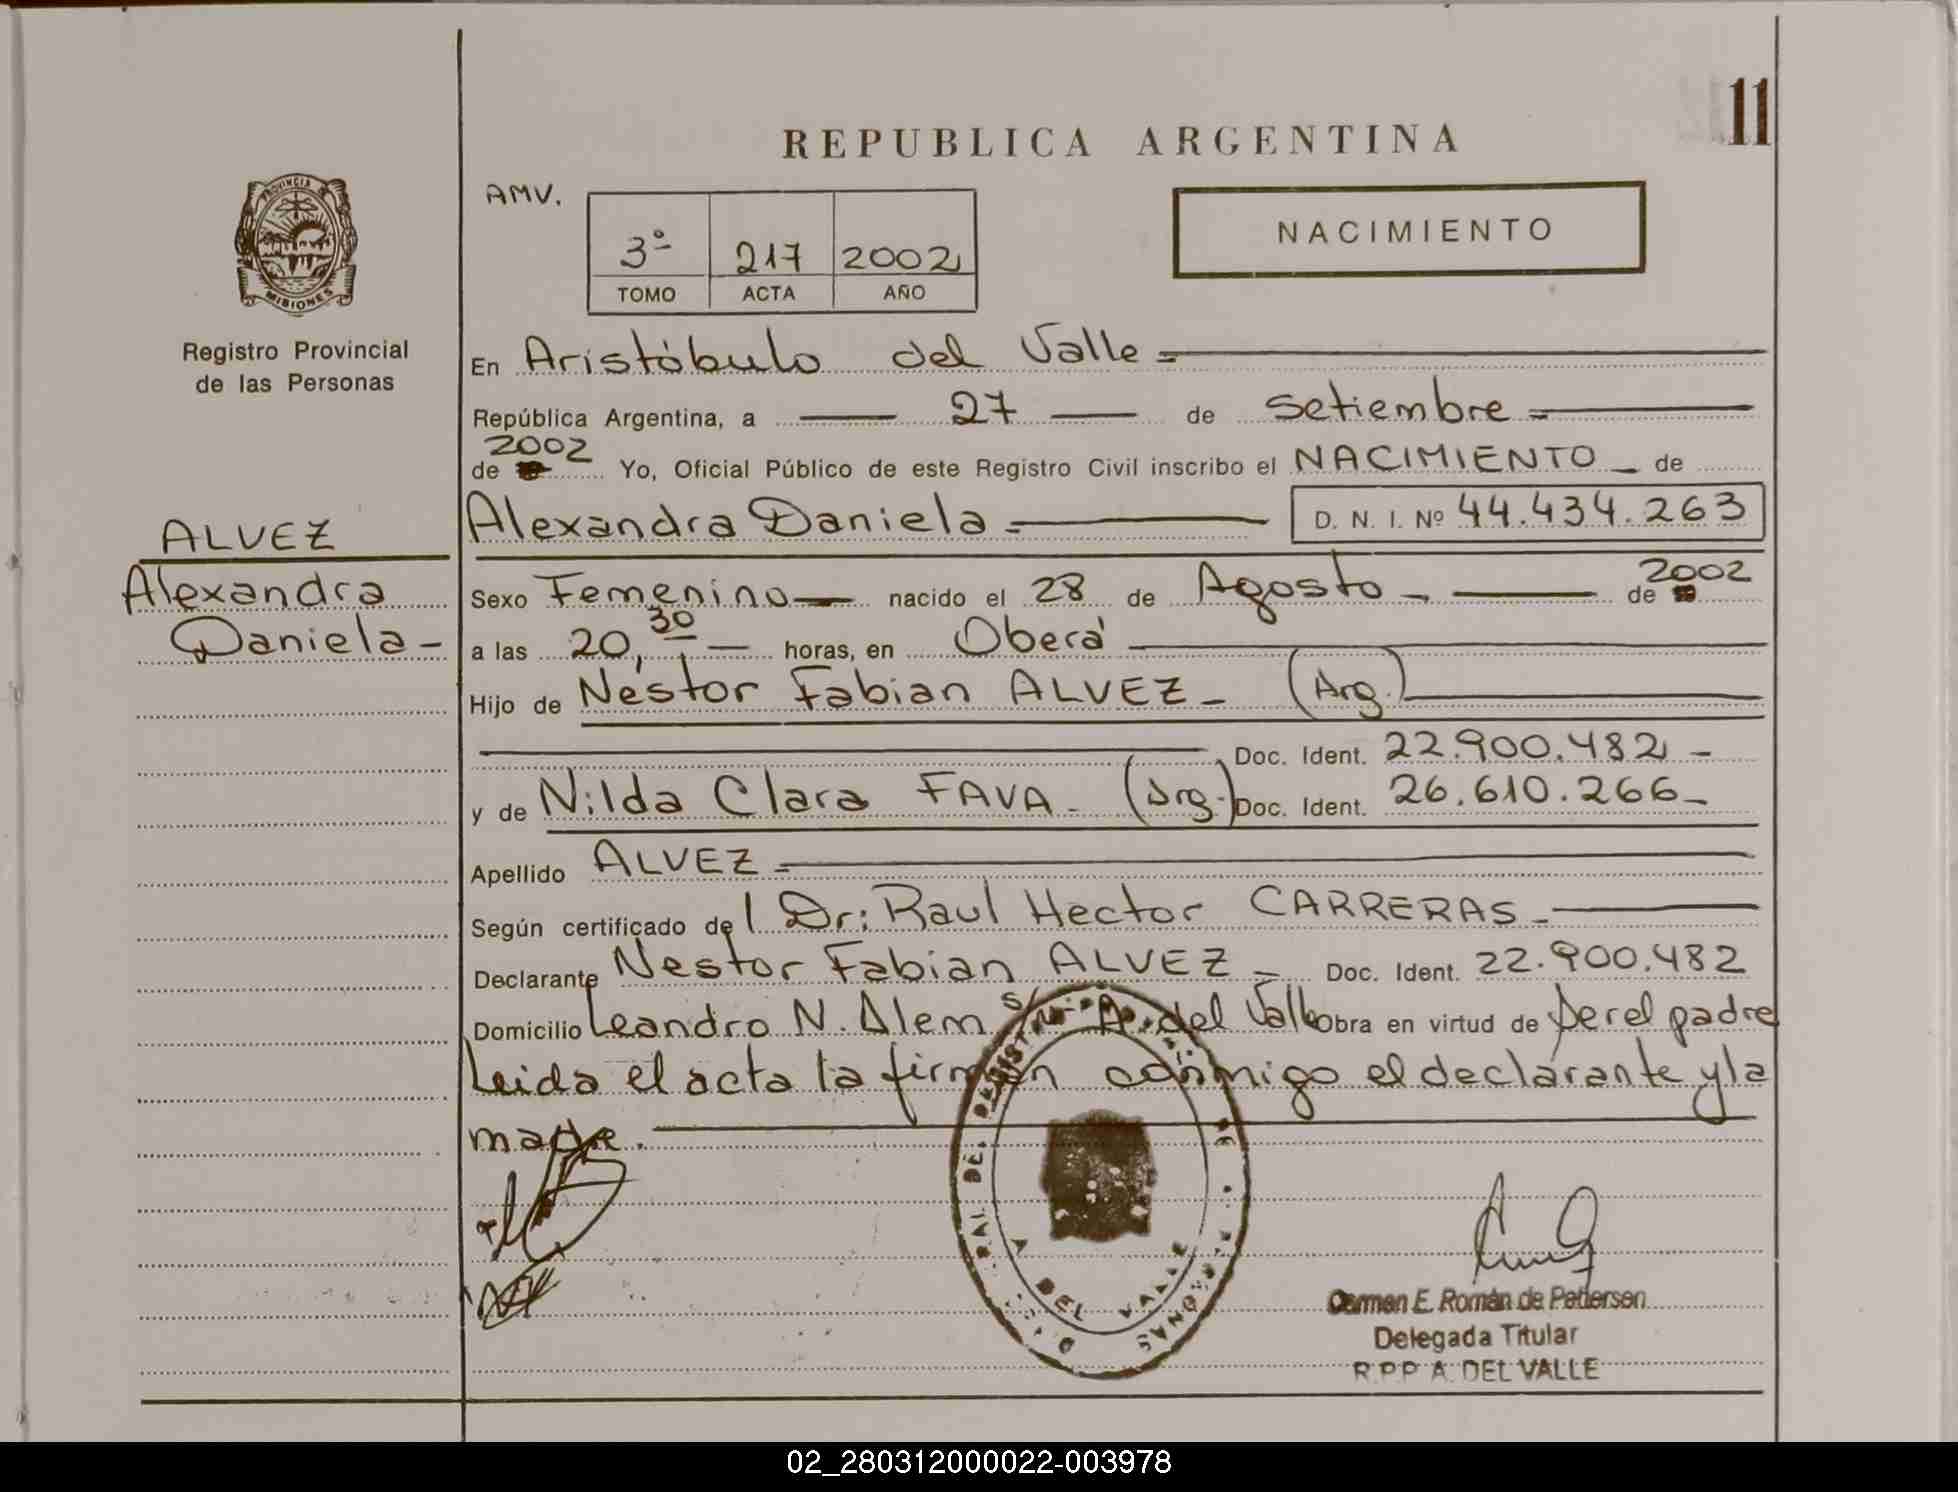 11
REPUBLICA ARGENTINA
AMV.
NACIMIENTO
3º 217 2002
TOMO ACTA AÑO
PROVINCIA DE
MISIONES
Registro Provincial
de las Personas
En Aristóbulo del Valle =
República Argentina, a — 27 — de Setiembre =
2002
de Yo, Oficial Público de este Registro Civil inscribo el NACIMIENTO _ de
Alexandra Daniela = D. N. I. Nº 44.434.263
ALVEZ
Alexandra
Daniela -
Sexo Femenino — nacido el 28 de Agosto - — de 2002
a las 20,30 — horas, en Oberá —
Hijo de Néstor Fabian ALVEZ - (Arg.)
Doc. Ident. 22.900.482 -
y de Nilda Clara FAVA - (Arg.) Doc. Ident. 26.610.266 -
Apellido ALVEZ =
Según certificado de l Dr: Raul Hector CARRERAS -
Declarante Nestor Fabian ALVEZ - Doc. Ident. 22.900.482
Domicilio Leandro N. Alem s/nº A. del Valle obra en virtud de ser el padre
Leida el acta la firman conmigo el declarante y la
madre.
DEL VALLE
Carmen E. Román de Pettersen
Delegada Titular
R.P.P A. DEL VALLE
02_280312000022-003978